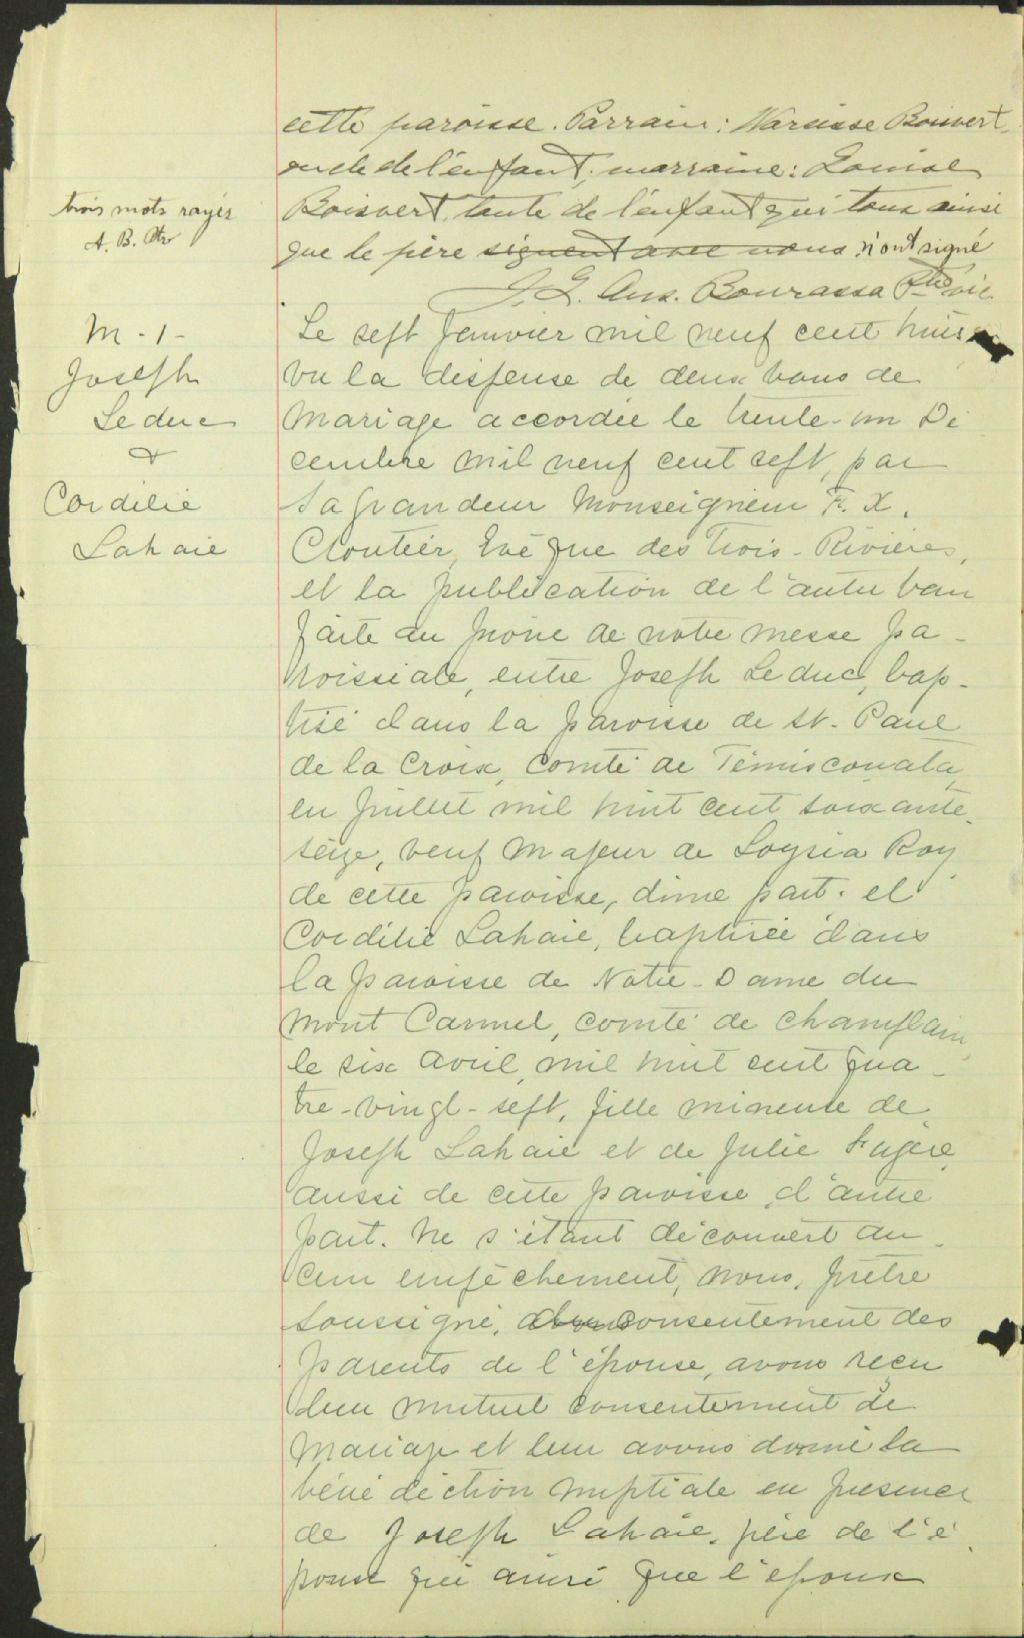 cette paroisse. Parrain: Narcisse Boisvert,
oncle de l'enfant; marraine: Louise
Boisvert, tante de l'enfant qui tous ainsi
que le père signent avec nous n'ont signé
trois mots rayés
A. B. Ptre
J. G. Ans. Bourassa Ptre vic.
M-1-
Joseph
Leduc
&
Cordélie
Lahaie
Le sept Janvier mil neuf cent huit,
vu la dispense de deux bans de
Mariage accordée le trente-un Dé
cembre mil neuf cent sept, par
Sa Grandeur Monseigneur F. X.
Cloutier, Evêque des Trois-Rivières,
et la publication de l'autre ban
faite au prône de notre messe pa-
roissiale, entre Joseph Leduc, bap-
tisé dans la paroisse de St. Paul
de la Croix, Comté de Témiscouata,
en Juillet mil huit cent soixante-
seize, veuf majeur de
de cette paroisse, d'une part. et
Cordélie Lahaie, baptisée dans
la paroisse de Notre-Dame du
Mont Carmel, comté de Champlain,
le six avril, mil huit cent qua-
tre-vingt-sept, fille mineure de
Joseph Lahaie et de Julie Fugère,
aussi de cette paroisse, d'autre
part. Ne s'étant découvert au-
cun empêchement, nous, prêtre
soussigné, consentement des
parents de l'épouse, avons reçu
leur mutuel consentement de
Mariage et leur avons donné la
bénédiction nuptiale en présence
de Joseph Lahaie, père de l'é
pouse qui ainsi que l'époux